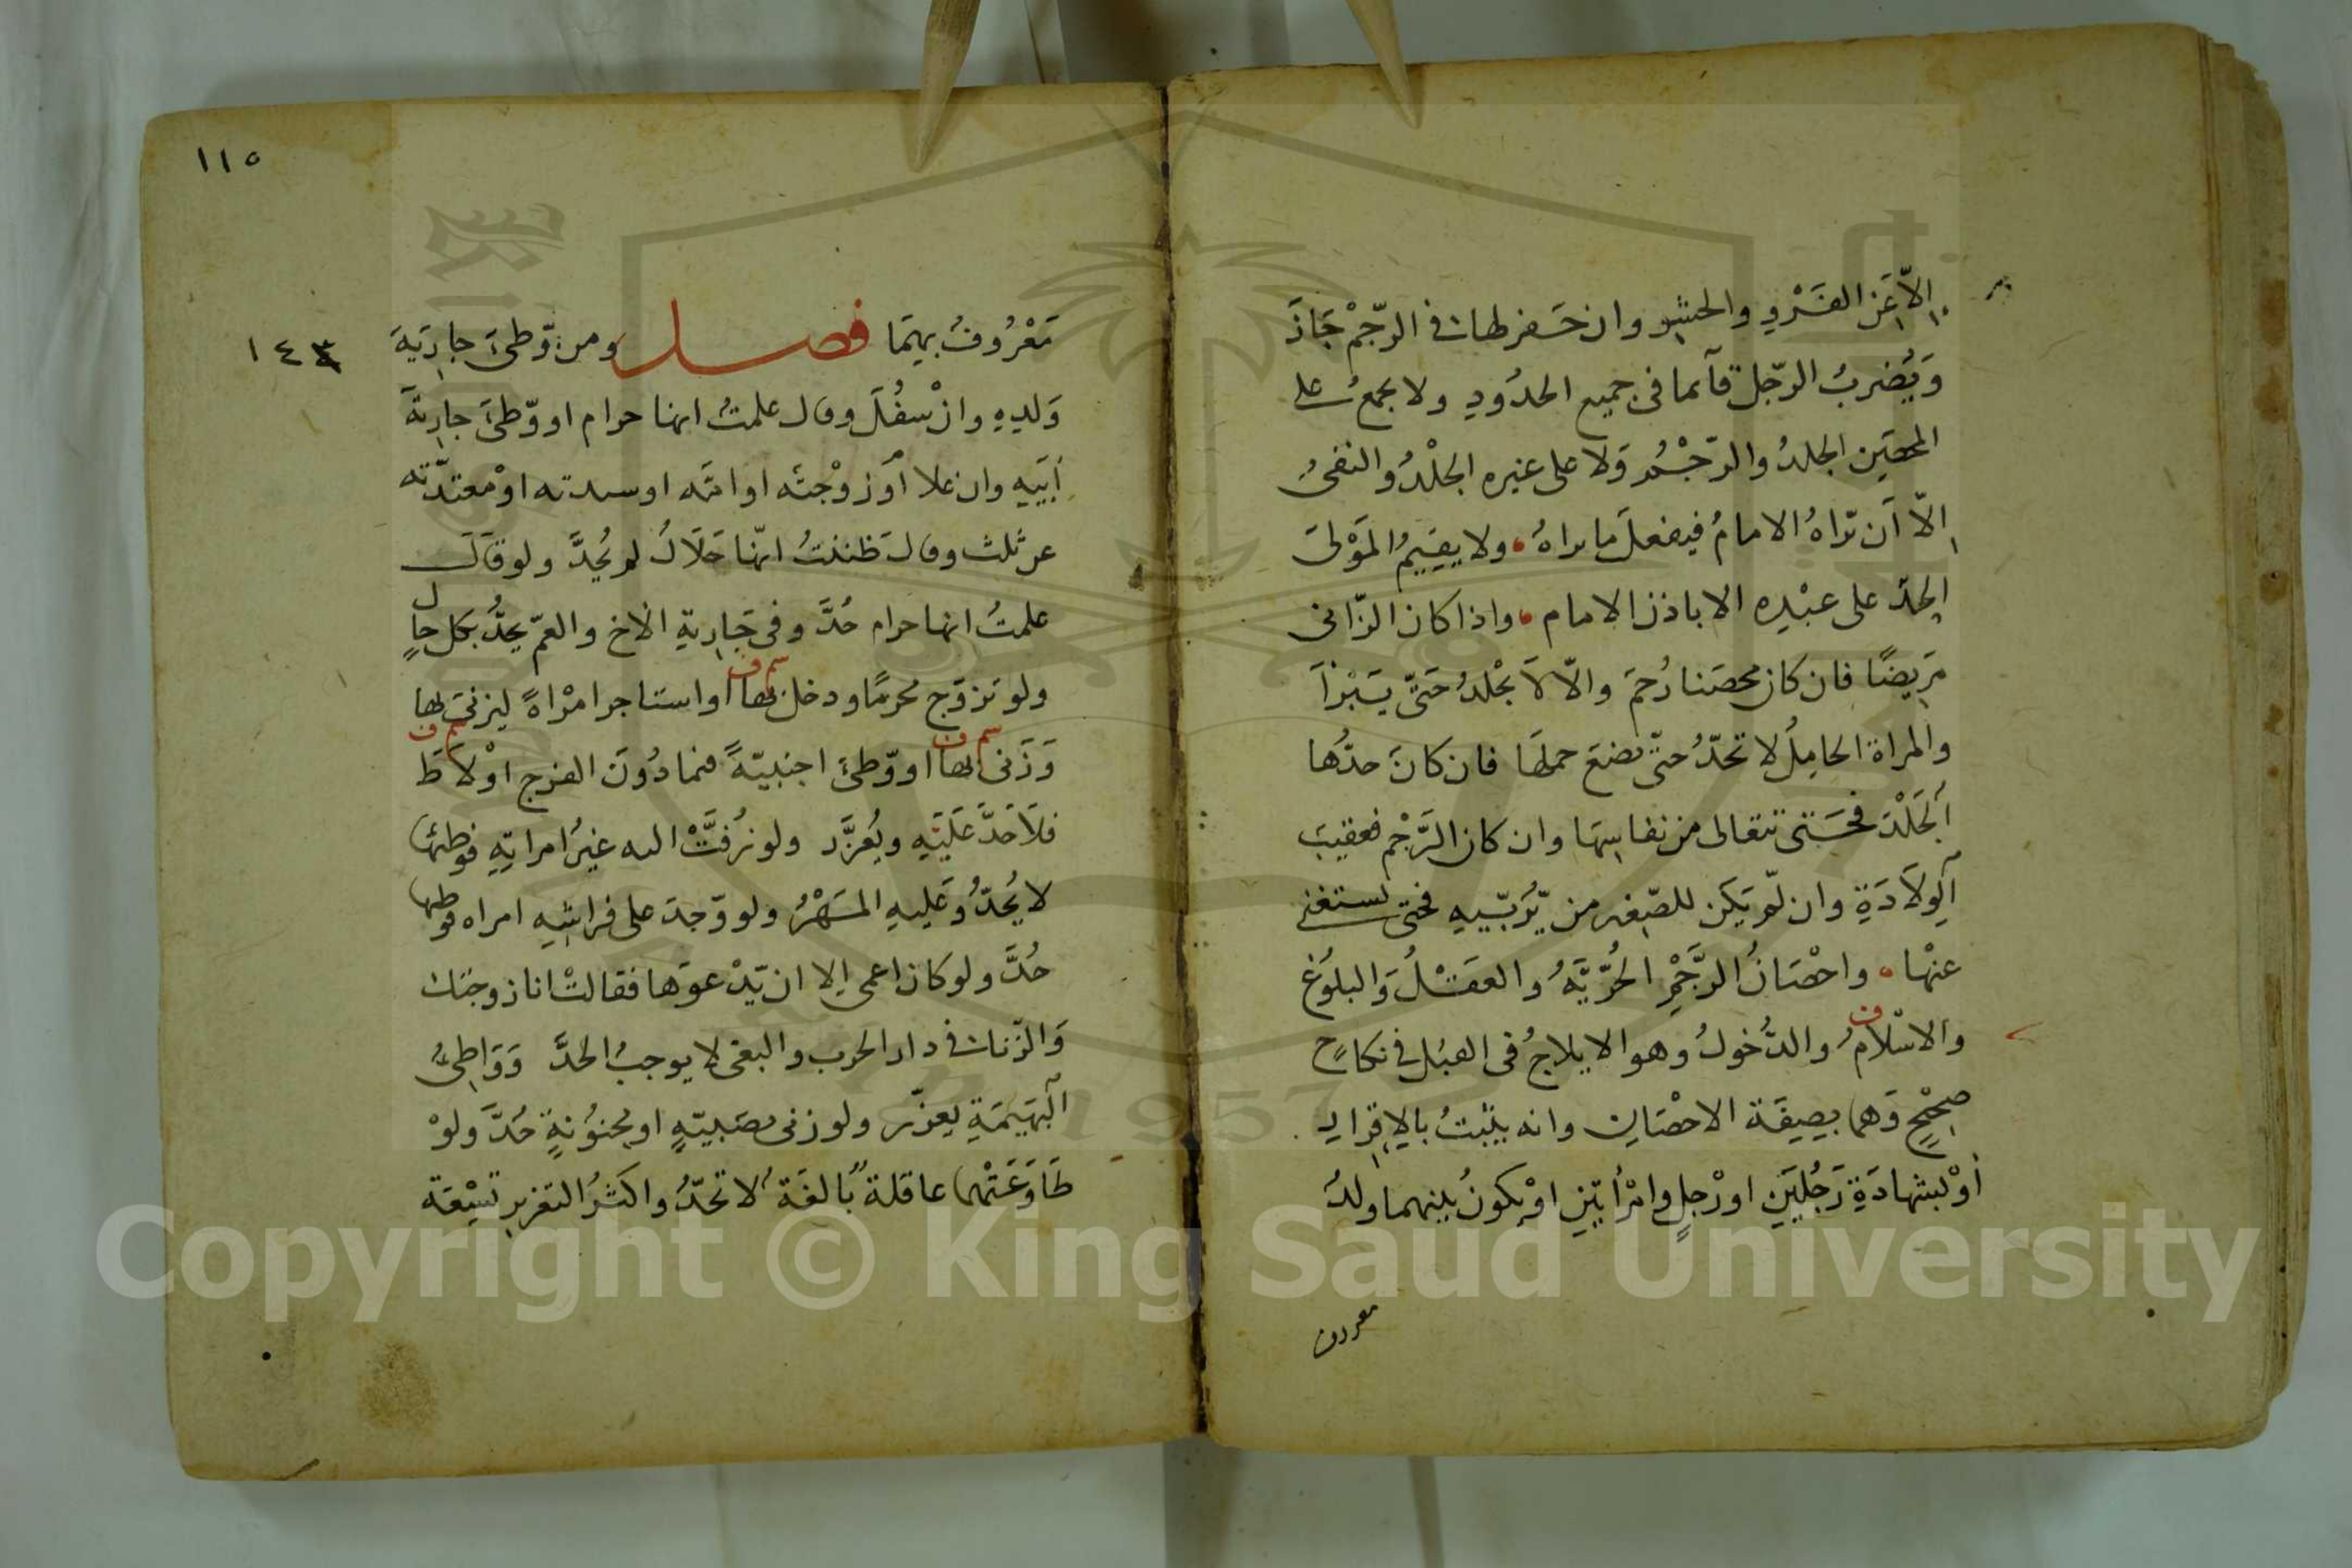 اِلّا عَنِ الفَرْوِ والحشوِ وان حَفر لها في الرّجْم جَازَ
وَيُضرَبُ الرّجل قآئما في جميع الحدُودِ ولا يجمعُ على
المحصَنِ الجلدُ والرّجْمُ وَلا على غيره الجلْدُ والنفيُ
اِلّا اَن يّراهُ الامامُ فيفعلَ ما يراهُ ولا يقيمُ المَوْلى
الحدّ على عبْدِه الا باذن الامام واذا كان الزّاني
مَرِيضًا فان كان محصَنا رُجمَ والّا لاَ يجْلدُ حَتّى يَبْرأَ
والمراة الحامِلُ لا تحدّ حتّى تضعَ حملهَا فان كانَ حدّها
اَلجَلْدَ فحَتى تتعالى من نفاسِهَا وان كان الرَّجْم فعقيبَ
اَلوِلاَدَةِ وان لّم يَكن للصّغير من يّرَبّيهِ فحتى يستغنى
عنْها واحْصَانُ الرَّجْمِ الحُرّيَّةُ والعقْلُ وَالبلوُغ
والاسْلامُ والدُّخولُ وهو الايلاجُ في القبُل في نكاحٍ
صحِيْحٍ وَهما بصِفَة الاحْصَانِ وانه يثبتُ بالاِقرارِ
اَوْ بشهادَةِ رَجُلَيَنِ او رْجلٍ وامْرأتينِ اوْ يكونُ بينهما ولدُ
معروف
١١٥
١٤٣
مَعْرُوفُ بينهَمَا فصل ومن وّطئَ جارِيَةَ
وَلدِهِ وانْ سفُلَ وقال علمتُ انها حرام او وّطئَ جارِيَةَ
اَبيَهِ وان علا أوْ زوْجتَه او امّه او سيدته اوْ معتدّته
عن ثلث وقالَ ظننتُ انّها حَلاَلُ لم يُحَدَّ ولو قالَ
علمتُ انها حرام حُدَّ وفي جَارِيةِ الاخ والعمّ يحدُّ بكل حالٍ
ولو تزوّج محرمًا ودخل بها او استاجر امرْاةً ليزنيَ بها
سم ف
وَزَنى بها او وّطئَ اجنبيّةً فيما دُونَ الفرج اوْ لاَطَ
سم ف
سم ف
فلاَ حَدَّ عَلَيْهِ ويُعَزَّر ولو زُفَّتْ اليه غيرُ امراتِهِ فوطئها
لا يُحَدّ وَعَليهِ المَهْرُ ولو وّجدَ على فراشِهِ امراه فوطيها
حُدَّ ولو كان اعمى اِلا ان يّدْعوَها فقالتْ انا زوجتك
وَالزّنا في دار الحرب والبغى لا يوجبُ الحدَّ وَوَاطِئُ
اَلبَهَيمَةِ يعزّر ولو زنى بصَبيّةٍ او مجنوُنةٍ حُدَّ ولوْ
طَاوَعَتْهما عاقلةُ بالغَةُ لا تحدّ واكثرُ التعزيرِ تسْعَة